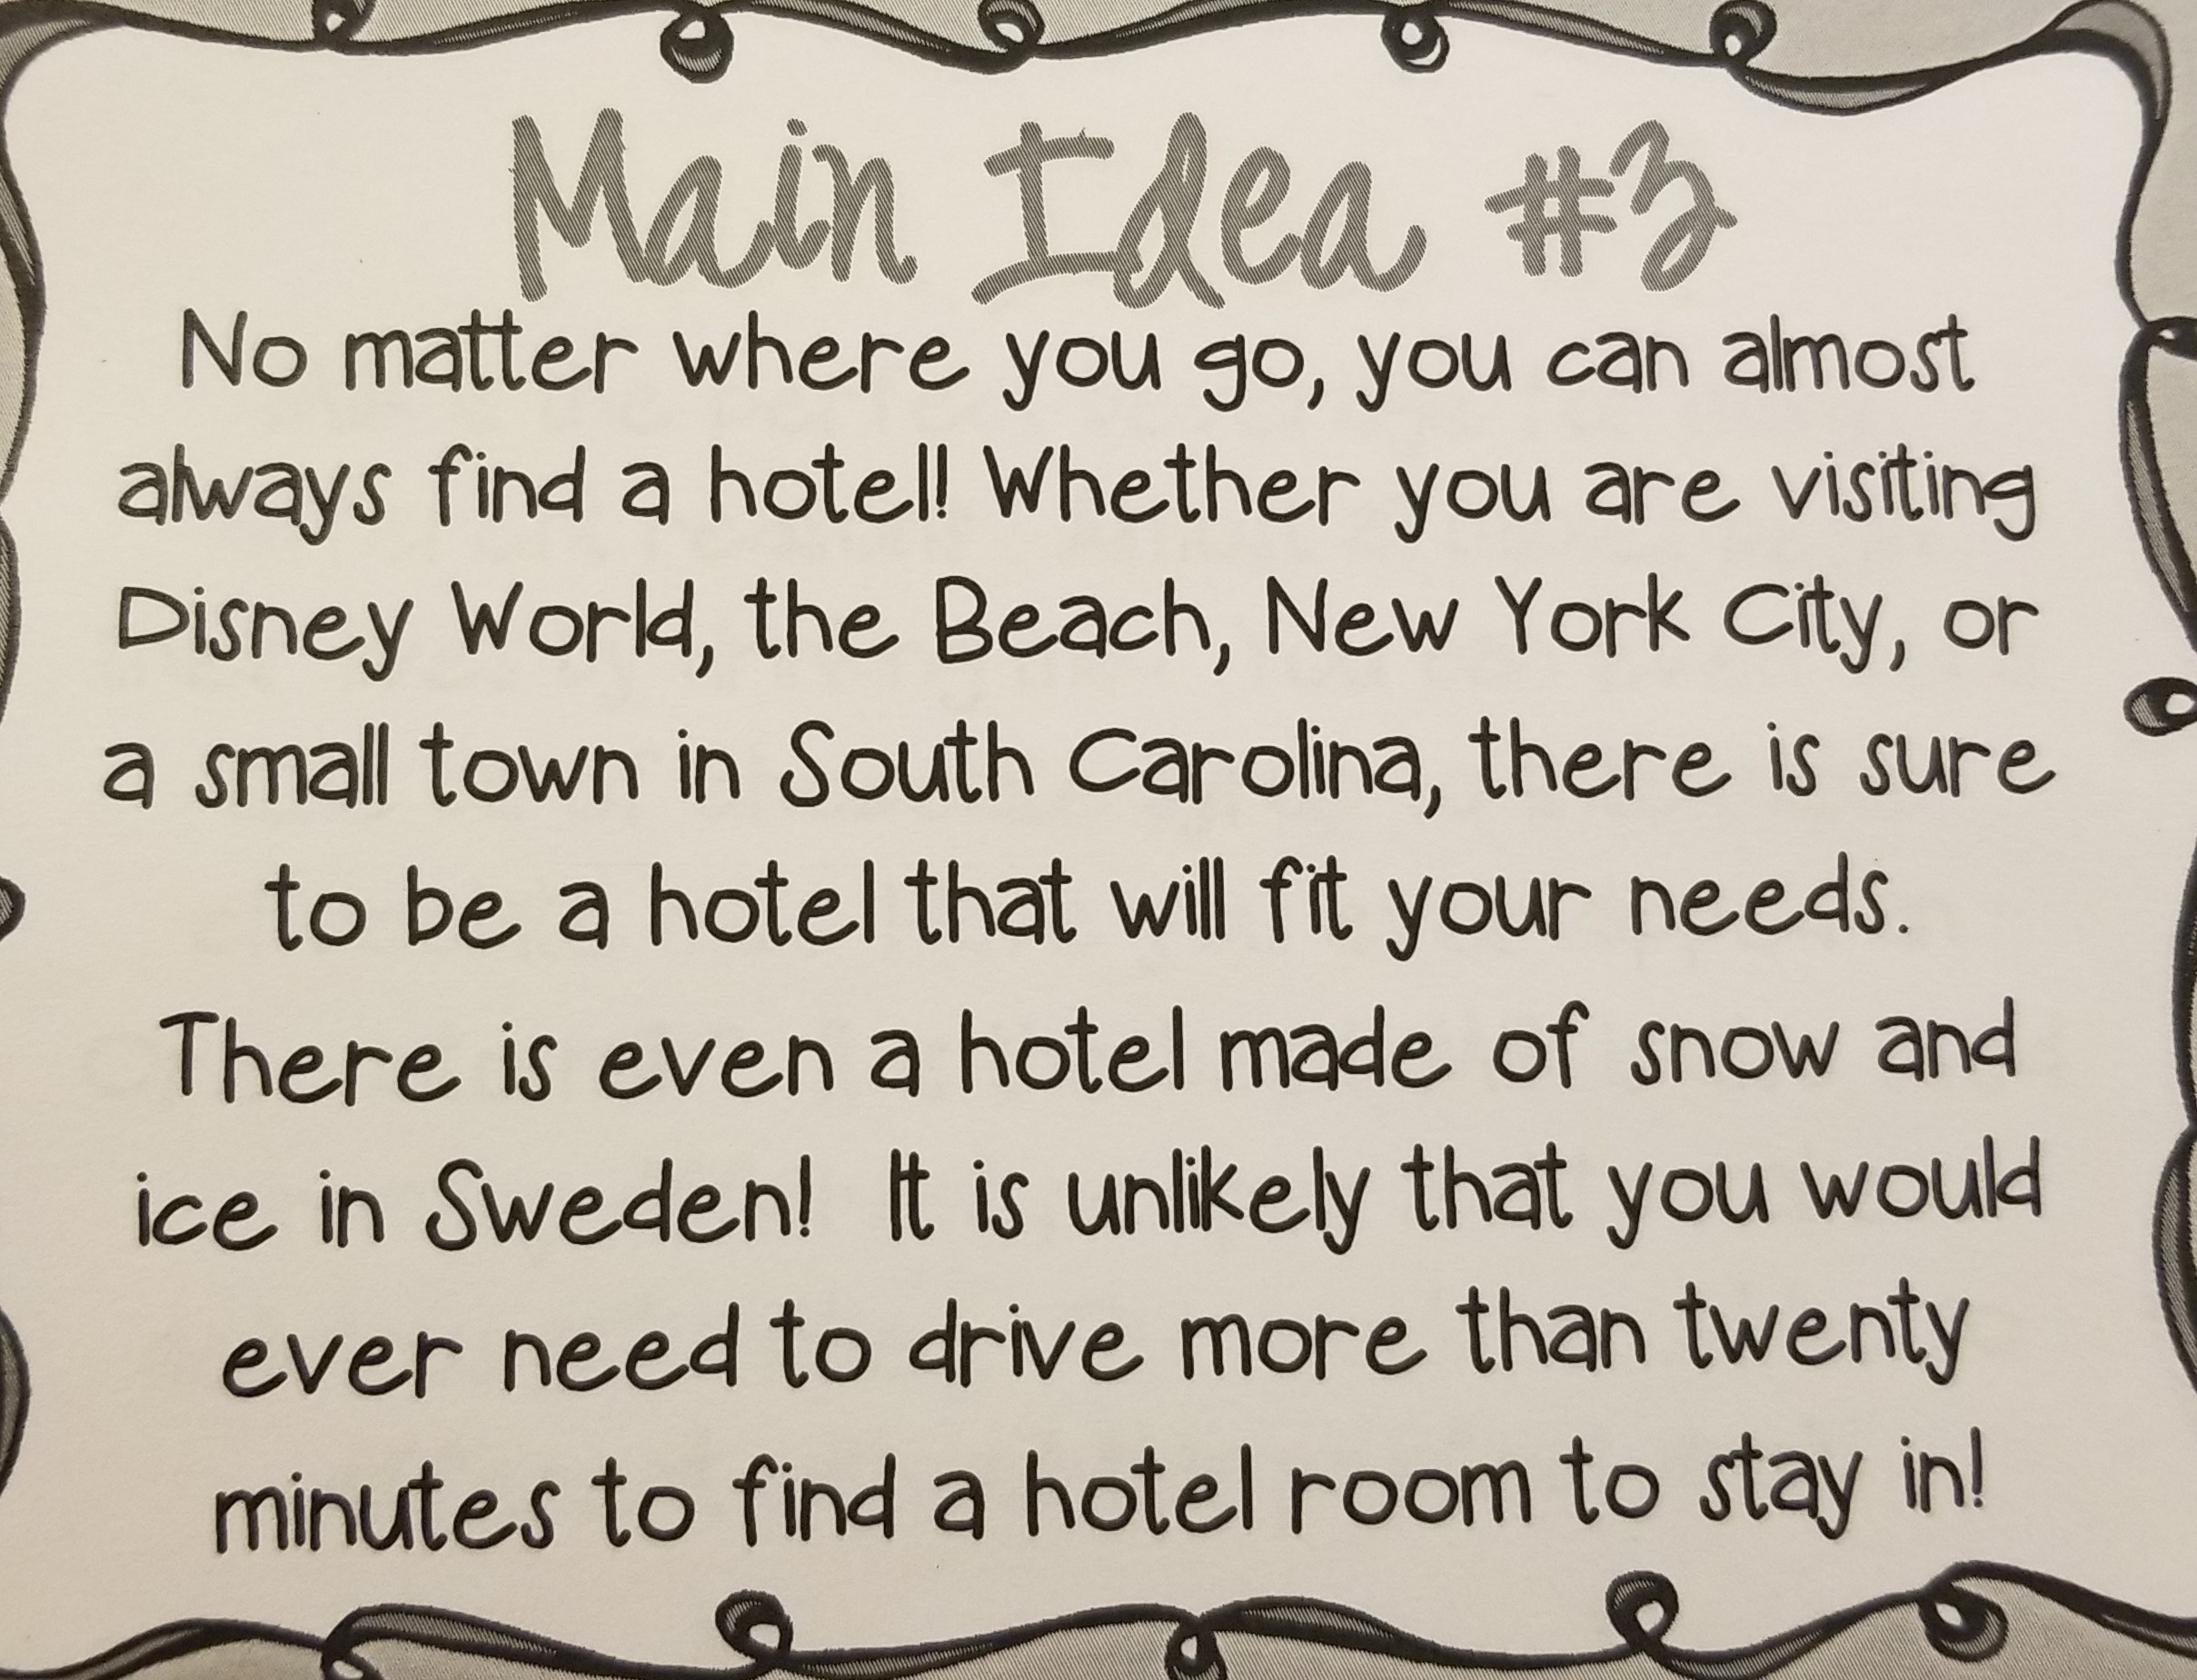 Main Idea #3
No matter where you go, you can almost
always find a hotel! Whether you are visiting
Disney World, the Beach, New York City, or
a small town in South Carolina, there is sure
to be a hotel that will fit your needs.
There is even a hotel made of snow and
ice in Sweden! It is unlikely that you would
ever need to drive more than twenty
minutes to find a hotel room to stay in!